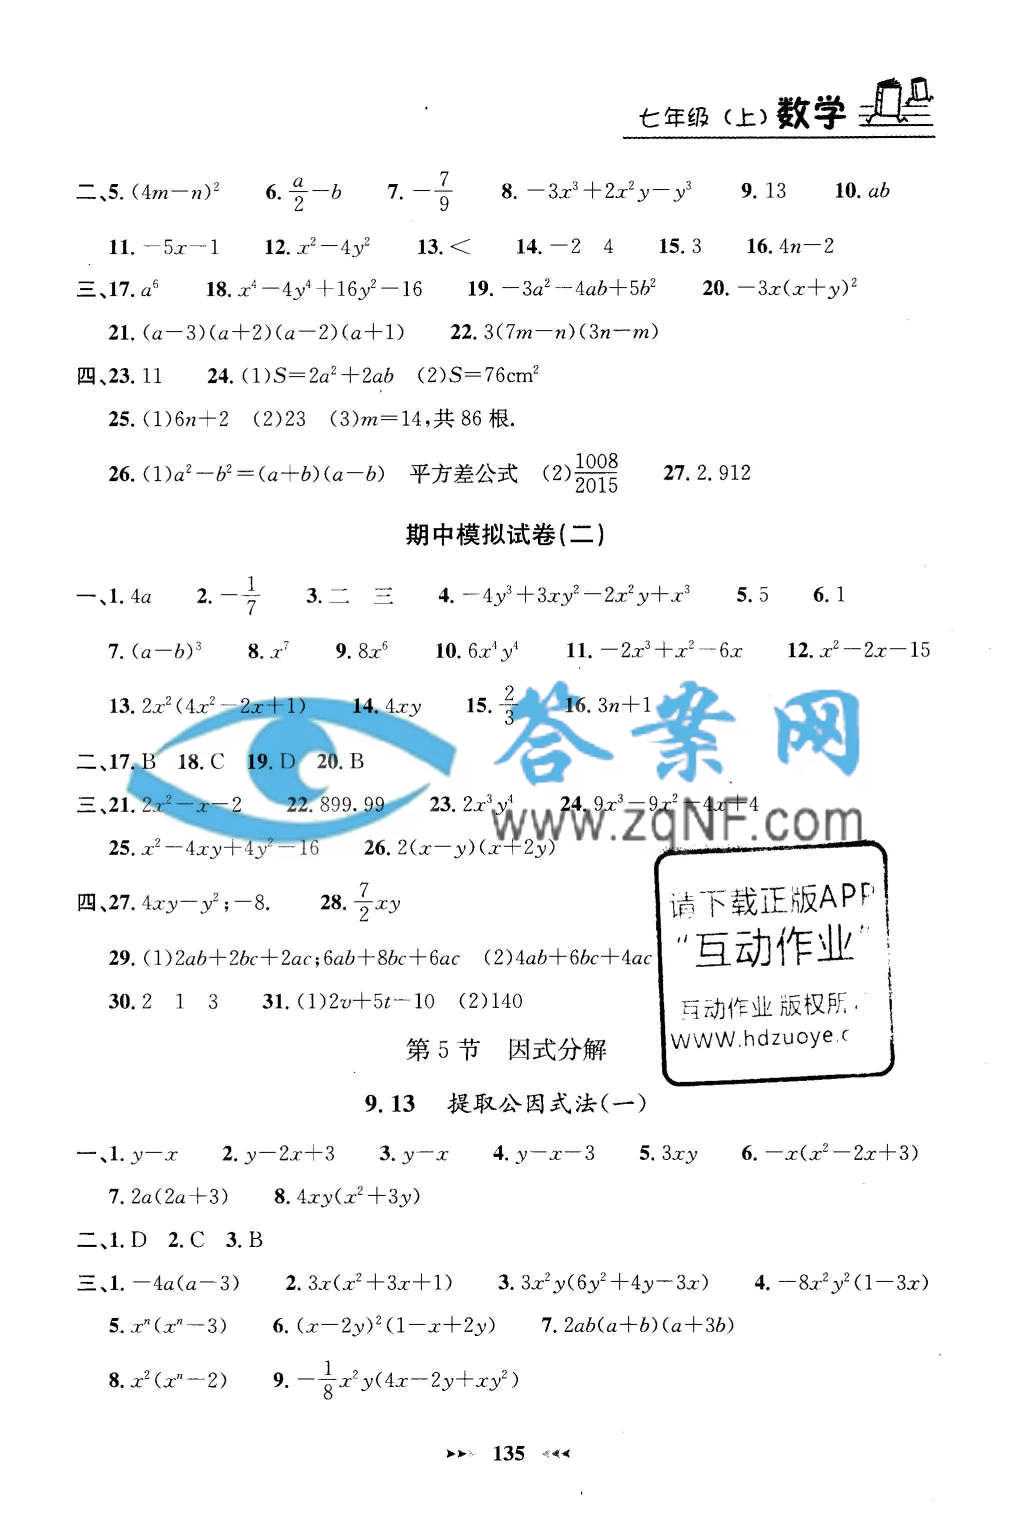 七年级(上)数学
二、5.(4m−n)²  6. a/2−b  7. −7/9  8. −3x³+2x²y−y³  9. 13  10. ab
11. −5x−1  12. x²−4y²  13. <  14. −2  4  15. 3  16. 4n−2
三、17. a⁶  18. x⁴−4y⁴+16y²−16  19. −3a²−4ab+5b²  20. −3x(x+y)²
21.(a−3)(a+2)(a−2)(a+1)  22. 3(7m−n)(3n−m)
四、23. 11  24.(1)S=2a²+2ab  (2)S=76cm²
25.(1)6n+2  (2)23  (3)m=14,共86根.
26.(1)a²−b²=(a+b)(a−b)  平方差公式  (2)1008/2015  27. 2.912
期中模拟试卷(二)
一、1. 4a  2. −1/7  3. 二  三  4. −4y³+3xy²−2x²y+x³  5. 5  6. 1
7.(a−b)³  8. x⁷  9. 8x⁶  10. 6x⁴y⁴  11. −2x³+x²−6x  12. x²−2x−15
13. 2x²(4x²−2x+1)  14. 4xy  15. 2/3  16. 3n+1
二、17. B  18. C  19. D  20. B
三、21. 2x²−x−2  22. 899.99  23. 2x³y⁴  24. 9x³−9x²−4x+4
25. x²−4xy+4y²−16  26. 2(x−y)(x+2y)
四、27. 4xy−y²;−8.  28. 7/2xy
29.(1)2ab+2bc+2ac;6ab+8bc+6ac  (2)4ab+6bc+4ac
30. 2  1  3  31.(1)2v+5t−10  (2)140
第5节  因式分解
9.13  提取公因式法(一)
一、1. y−x  2. y−2x+3  3. y−x  4. y−x−3  5. 3xy  6. −x(x²−2x+3)
7. 2a(2a+3)  8. 4xy(x²+3y)
二、1. D  2. C  3. B
三、1. −4a(a−3)  2. 3x(x²+3x+1)  3. 3x²y(6y²+4y−3x)  4. −8x²y²(1−3x)
5. xⁿ(xⁿ−3)  6.(x−2y)²(1−x+2y)  7. 2ab(a+b)(a+3b)
8. x²(xⁿ−2)  9. −1/8x²y(4x−2y+xy²)
135
答案网
www.zqNF.com
请下载正版APP
“互动作业”
互动作业 版权所
www.hdzuoye.c